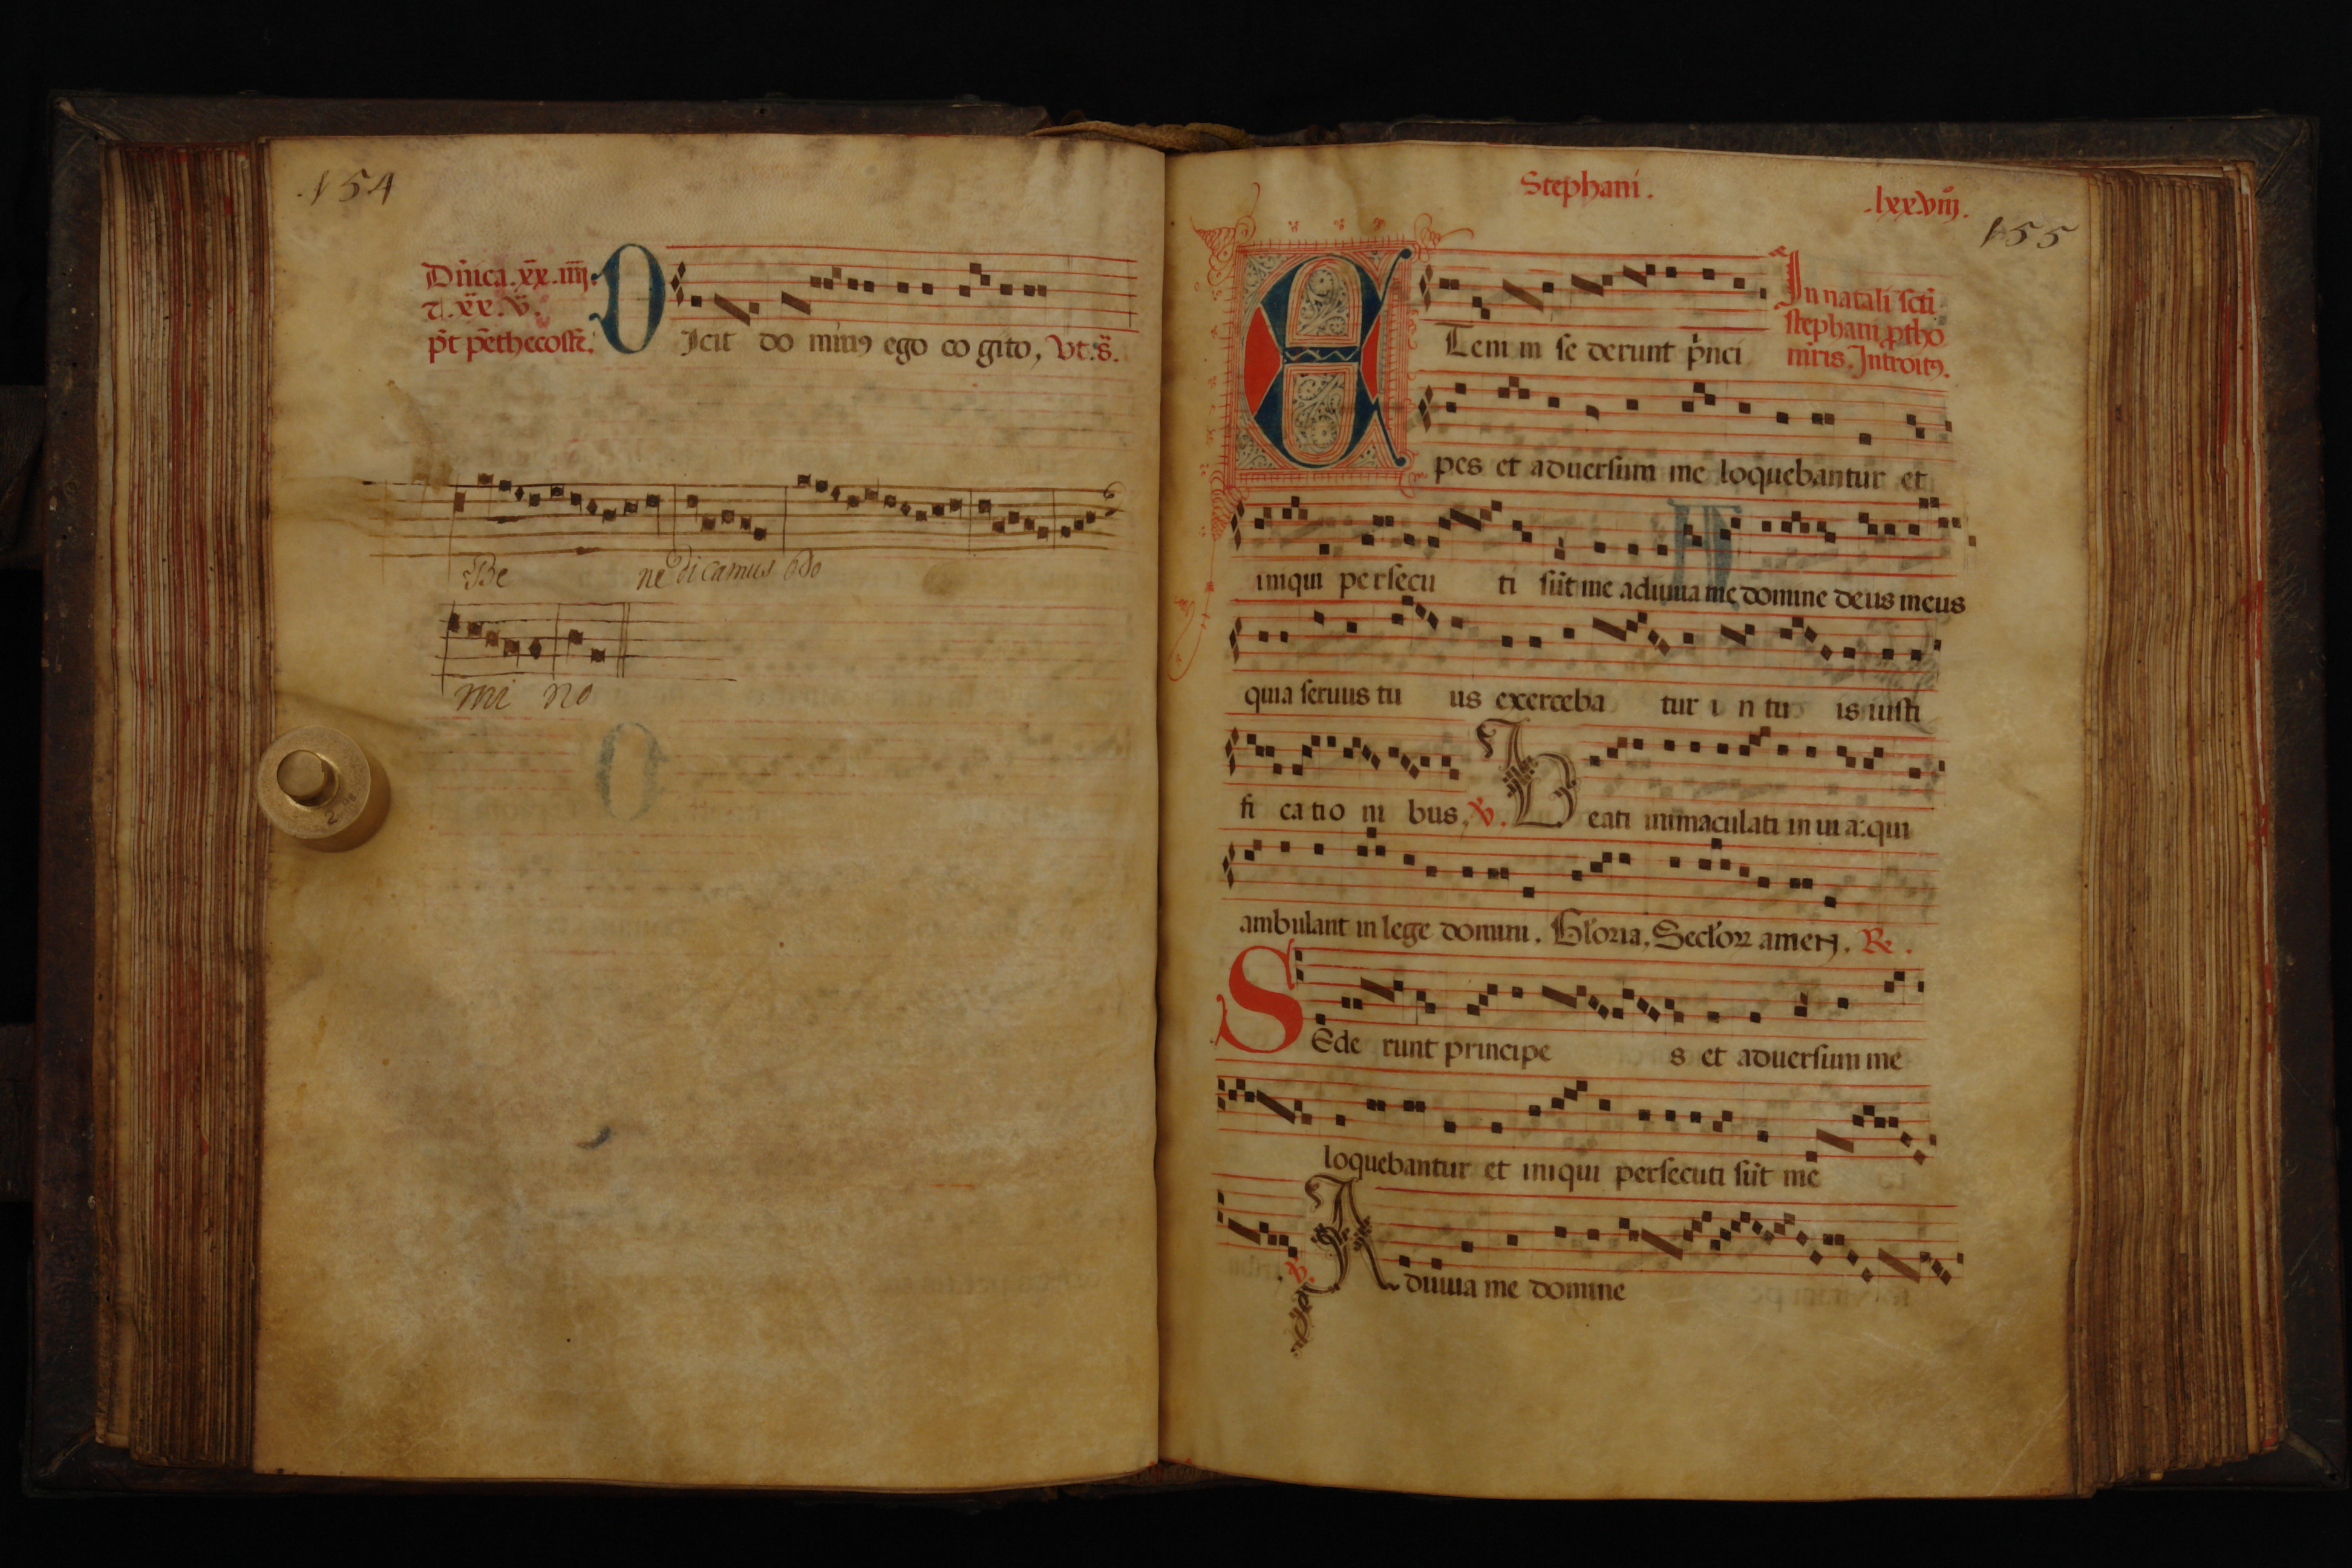 .154
Dn̄ica. xx. iiij.
⁊. xx. v.
p̄t pēthecostē.
DIcit do minꝰ ego co gito, vt. s̄.
Be ne dicamus Do
mi no
Stephani.
.lxxviiij.
155
In natali sc̄ti
stephani ꝓtho
mr̄is. Introitꝰ.
ETeni m se derunt p̄nci
pes et aduersum me loquebantur et
iniqui persecu ti sūt me adiuua me domine deus meus
quia seruus tu us exerceba tur i n tu is iusti
fi ca tio ni bus. ℣. Beati immaculati in ui a: qui
ambulant in lege domini. Gloria. Seclorꝝ amen. Re.
SEde runt principe s et aduersum me
loquebantur et iniqui persecuti sūt me
℣. Adiuua me domine